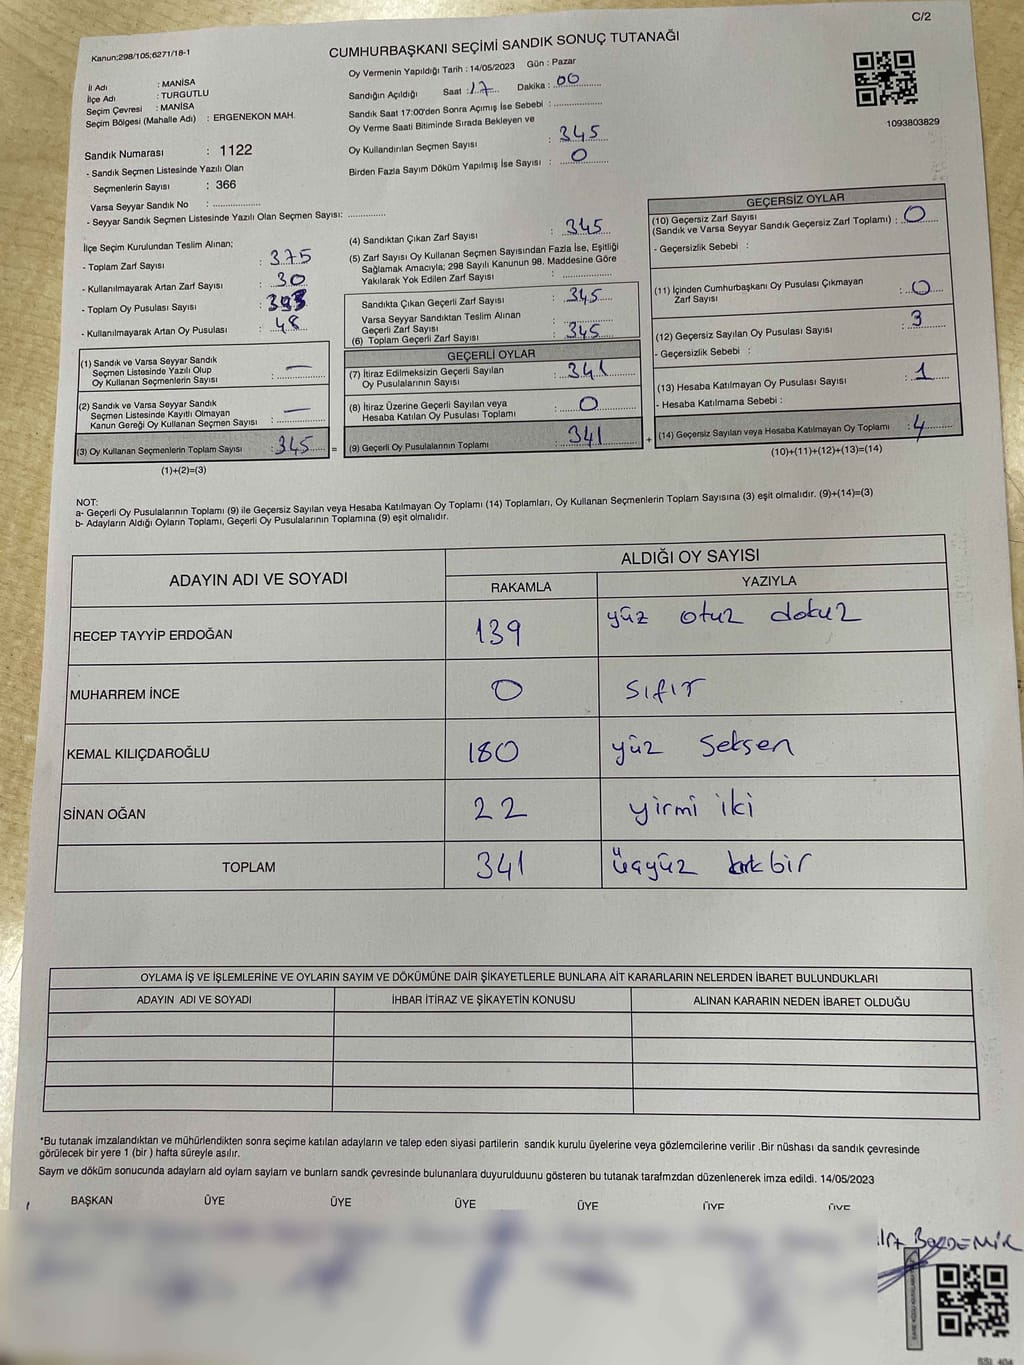 C/2
Kanun;298/105;6271/18-1
CUMHURBAŞKANI SEÇİMİ SANDIK SONUÇ TUTANAĞI
İl Adı : MANİSA
İlçe Adı : TURGUTLU
Seçim Çevresi : MANİSA
Seçim Bölgesi (Mahalle Adı) : ERGENEKON MAH.
Sandık Numarası : 1122
- Sandık Seçmen Listesinde Yazılı Olan
Seçmenlerin Sayısı : 366
Varsa Seyyar Sandık No : ..................
- Seyyar Sandık Seçmen Listesinde Yazılı Olan Seçmen Sayısı: .............
Oy Vermenin Yapıldığı Tarih : 14/05/2023 Gün : Pazar
Sandığın Açıldığı Saat : 17 Dakika : 00
Sandık Saat 17:00'den Sonra Açımış İse Sebebi : ................
Oy Verme Saati Bitiminde Sırada Bekleyen ve
Oy Kullandırılan Seçmen Sayısı : 345
Birden Fazla Sayım Döküm Yapılmış İse Sayısı : 0
1093803829
İlçe Seçim Kurulundan Teslim Alınan;
- Toplam Zarf Sayısı : 375
- Kullanılmayarak Artan Zarf Sayısı : 30
- Toplam Oy Pusulası Sayısı : 393
- Kullanılmayarak Artan Oy Pusulası : 48
(1) Sandık ve Varsa Seyyar Sandık
Seçmen Listesinde Yazılı Olup
Oy Kullanan Seçmenlerin Sayısı : —
(2) Sandık ve Varsa Seyyar Sandık
Seçmen Listesinde Kayıtlı Olmayan
Kanun Gereği Oy Kullanan Seçmen Sayısı : —
(3) Oy Kullanan Seçmenlerin Toplam Sayısı : 345 =
(1)+(2)=(3)
(4) Sandıktan Çıkan Zarf Sayısı : 345
(5) Zarf Sayısı Oy Kullanan Seçmen Sayısından Fazla İse, Eşitliği
Sağlamak Amacıyla; 298 Sayılı Kanunun 98. Maddesine Göre
Yakılarak Yok Edilen Zarf Sayısı : .............
Sandıkta Çıkan Geçerli Zarf Sayısı : 345
Varsa Seyyar Sandıktan Teslim Alınan
Geçerli Zarf Sayısı : .............
(6) Toplam Geçerli Zarf Sayısı : 345
GEÇERLİ OYLAR
(7) İtiraz Edilmeksizin Geçerli Sayılan
Oy Pusulalarının Sayısı : 341
(8) İtiraz Üzerine Geçerli Sayılan veya
Hesaba Katılan Oy Pusulası Toplamı : 0
(9) Geçerli Oy Pusulalarının Toplamı : 341 +
GEÇERSİZ OYLAR
(10) Geçersiz Zarf Sayısı
(Sandık ve Varsa Seyyar Sandık Geçersiz Zarf Toplamı) : 0
- Geçersizlik Sebebi :
(11) İçinden Cumhurbaşkanı Oy Pusulası Çıkmayan
Zarf Sayısı : 0
(12) Geçersiz Sayılan Oy Pusulası Sayısı : 3
- Geçersizlik Sebebi :
(13) Hesaba Katılmayan Oy Pusulası Sayısı : 1
- Hesaba Katılmama Sebebi :
(14) Geçersiz Sayılan veya Hesaba Katılmayan Oy Toplamı : 4
(10)+(11)+(12)+(13)=(14)
NOT:
a- Geçerli Oy Pusulalarının Toplamı (9) ile Geçersiz Sayılan veya Hesaba Katılmayan Oy Toplamı (14) Toplamları, Oy Kullanan Seçmenlerin Toplam Sayısına (3) eşit olmalıdır. (9)+(14)=(3)
b- Adayların Aldığı Oyların Toplamı, Geçerli Oy Pusulalarının Toplamına (9) eşit olmalıdır.
ADAYIN ADI VE SOYADI
ALDIĞI OY SAYISI
RAKAMLA YAZIYLA
RECEP TAYYİP ERDOĞAN 139 yüz otuz dokuz
MUHARREM İNCE 0 sıfır
KEMAL KILIÇDAROĞLU 180 yüz seksen
SİNAN OĞAN 22 yirmi iki
TOPLAM 341 üçyüz kırk bir
OYLAMA İŞ VE İŞLEMLERİNE VE OYLARIN SAYIM VE DÖKÜMÜNE DAİR ŞİKAYETLERLE BUNLARA AİT KARARLARIN NELERDEN İBARET BULUNDUKLARI
ADAYIN ADI VE SOYADI İHBAR İTİRAZ VE ŞİKAYETİN KONUSU ALINAN KARARIN NEDEN İBARET OLDUĞU
*Bu tutanak imzalandıktan ve mühürlendikten sonra seçime katılan adayların ve talep eden siyasi partilerin sandık kurulu üyelerine veya gözlemcilerine verilir .Bir nüshası da sandık çevresinde
görülecek bir yere 1 (bir ) hafta süreyle asılır.
Saym ve döküm sonucunda adayların ald oylam saylam ve bunların sandk çevresinde bulunanlara duyurulduunu gösteren bu tutanak tarafmzdan düzenlenerek imza edildi. 14/05/2023
BAŞKAN ÜYE ÜYE ÜYE ÜYE ÜYE ÜYE